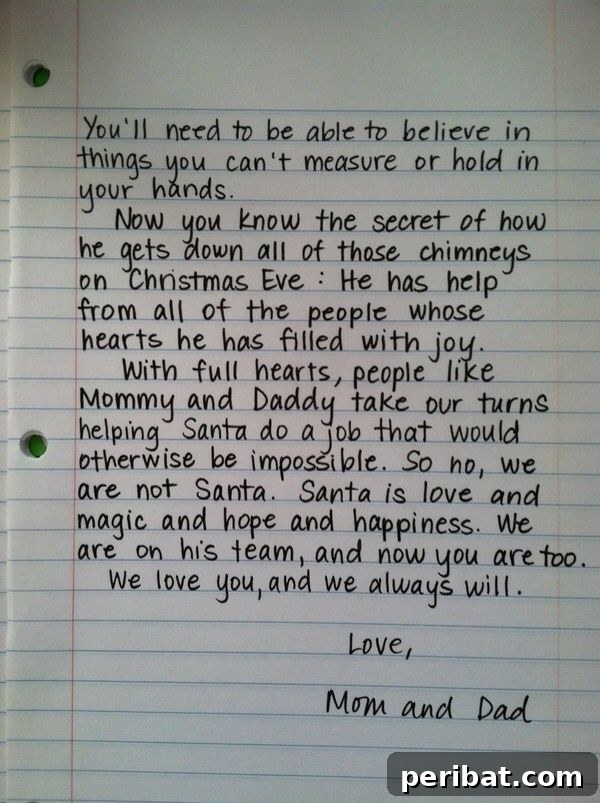 You'll need to be able to believe in
things you can't measure or hold in
your hands.
Now you know the secret of how
he gets down all of those chimneys
on Christmas Eve : He has help
from all of the people whose
hearts he has filled with joy.
With full hearts, people like
Mommy and Daddy take our turns
helping Santa do a job that would
otherwise be impossible. So no, we
are not Santa. Santa is love and
magic and hope and happiness. We
are on his team, and now you are too.
We love you, and we always will.
Love,
Mom and Dad
peribat.com